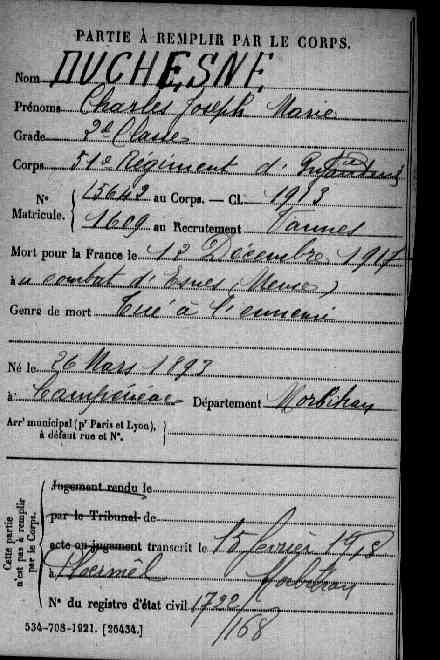 PARTIE À REMPLIR PAR LE CORPS.
Nom DUCHESNE
Prénoms Charles Joseph Marie
Grade 2e Classe
Corps 51e Régiment d'Infanterie
N° Matricule. { 15642 au Corps. — Cl. 1913
1609 au Recrutement Vannes
Mort pour la France le 12 Décembre 1917
à u combat d'Esnes (Meuse)
Genre de mort Tué à l'ennemi
Né le 26 Mars 1893
à Campénéac Département Morbihan
Arrt municipal (pr Paris et Lyon), à défaut rue et N°. }
Cette partie n'est pas à remplir par le Corps.
Jugement rendu le
par le Tribunal de
acte ou jugement transcrit le 15 février 1918
à Ploermël Morbihan
N° du registre d'état civil 1722/168
534-708-1921. [26434.]